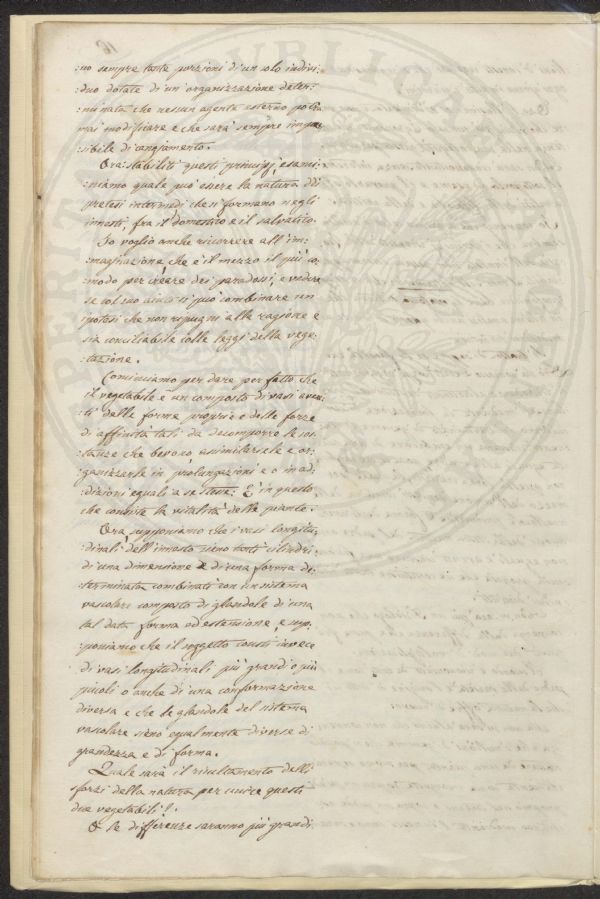 :no sempre tante porzioni d'un solo indivi:
:duo dotate di un organizzazione deter:
:minata che nessun agente esterno potrà
mai modificare e che sarà sempre impas:
:sibile di cangiamento.
Ora stabiliti questi principj, esami:
:niamo quale può essere la natura dei
pretesi intermedi che si formano negli
innesti, fra il domestico e il salvatico.
Io voglio anche ricorrere all'im:
:maginazione che è il mezzo il più co:
:modo per creare dei paradossi, e vedere
se col suo aiuto si può combinare un
ipotesi che non repugni alla ragione e
sia conciliabile colle leggi della vege:
:tazione.
Cominciamo per dare per fatto che
il vegetabile è un composto di vasi aven:
:ti delle forme proprie e delle forze
di affinità tali da decomporre le sos:
:tanze che bevono assimilarsele e or:
:ganizzarle in prolungazioni e o in ad:
:dizioni eguali a se stesse: È in questo,
che consiste la vitalità delle piante.
Ora, supponiamo che i vasi longitu:
:dinali dell'innesto sieno tanti cilindri
di una dimensione e di una forma de:
:terminata combinati con un sistema
vascolare composto di glandole di una
tal data forma ed estensione, e sup:
:poniamo che il soggetto consti invece
di vasi longitudinali più grandi o più
piccoli o anche di una conformazione
diversa e che le glandole del sistema
vascolare sieno egualmente diverse di
grandezza e di forma.
Quale sarà il risultamento delli
sforzi della natura per unire questi
due vegetabili?.
O le differenze saranno più grandi